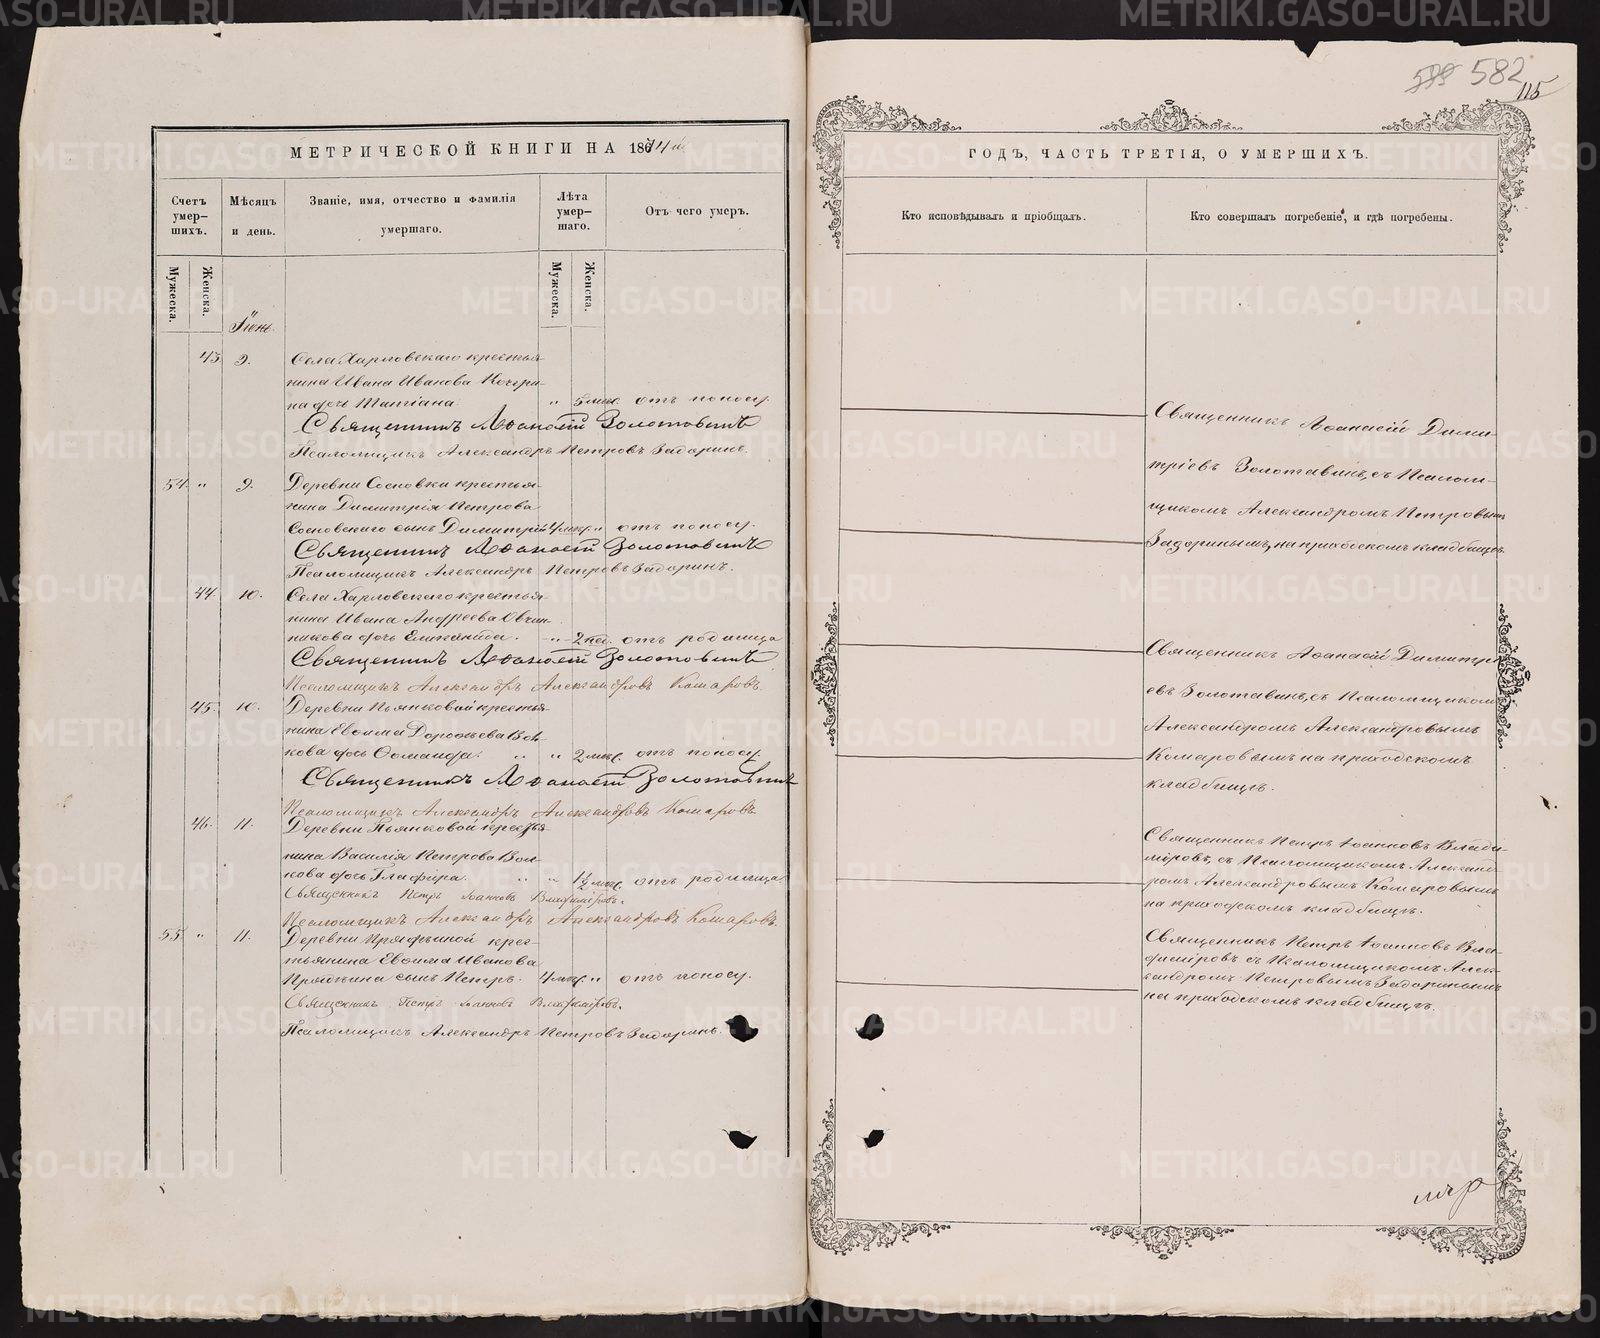 582
115
МЕТРИЧЕСКОЙ КНИГИ НА 1874й
Счетъ умер-шихъ.
Мѣсяцъ и день.
Званіе, имя, отчество и фамилія умершаго.
Лѣта умер-шаго.
Отъ чего умеръ.
Мужеска.
Женска.
Мужеска.
Женска.
Іюнь
43. 9. Села Харловскаго крестья-
нина Ивана Иванова
на дочь Татіана. " 5 мѣс. отъ поносу.
Священникъ Аѳанасій Золотавинъ
Псаломщикъ Александръ Петровъ Задоринъ.
54. " 9. Деревни Сосновки крестья-
нина Димитрія Петрова
Сосновскаго сынъ Димитрій 4 мѣс. " отъ поносу.
Священникъ Аѳанасій Золотавинъ
Псаломщикъ Александръ Петровъ Задоринъ.
44. 10. Села Харловскаго крестья-
нина Ивана Андреева Овчин-
никова дочь " 2 нед. отъ родимца
Священникъ Аѳанасій Золотавинъ
Псаломщикъ Александръ Александровъ Комаровъ.
45. 10. Деревни Пьянковой крестья-
нина Евѳима Дороѳеева Вол-
кова дочь " " 2 мѣс. отъ поносу.
Священникъ Аѳанасій Золотавинъ
Псаломщикъ Александръ Александровъ Комаровъ
46. 11. Деревни Пьянковой крестья-
нина Василія Петрова Вол-
кова дочь Глафира. " " 1½ мѣс. отъ родимца.
Священникъ Петръ Іоанновъ Владиміровъ.
Псаломщикъ Александръ Александровъ Комаровъ.
55. " 11. Деревни Прядѣиной крес-
тьянина Евѳима Иванова
сынъ Петръ. 4 мѣс. " отъ поносу.
Священникъ Петръ Іоанновъ Владиміровъ.
Псаломщикъ Александръ Петровъ Задоринъ.
ГОДЪ, ЧАСТЬ ТРЕТІЯ, О УМЕРШИХЪ.
Кто исповѣдывалъ и пріобщалъ.
Кто совершалъ погребеніе, и гдѣ погребены.
Священникъ Аѳанасій Дими-
тріевъ Золотавинъ, съ Псалом-
щикомъ Александромъ Петровымъ
Задоринымъ, на приходскомъ кладбищѣ.
Священникъ Аѳанасій Димитрі-
евъ Золотавинъ, съ Псаломщикомъ
Александромъ Александровымъ
Комаровымъ на приходскомъ
кладбищѣ.
Священникъ Петръ Іоанновъ Влади-
міровъ, съ Псаломщикомъ Александ-
ромъ Александровымъ Комаровымъ
на приходскомъ кладбищѣ.
Священникъ Петръ Іоанновъ Вла-
диміровъ съ Псаломщикомъ Алек-
сандромъ Петровымъ Задоринымъ
на приходскомъ кладбищѣ.
METRIKI.GASO-URAL.RU